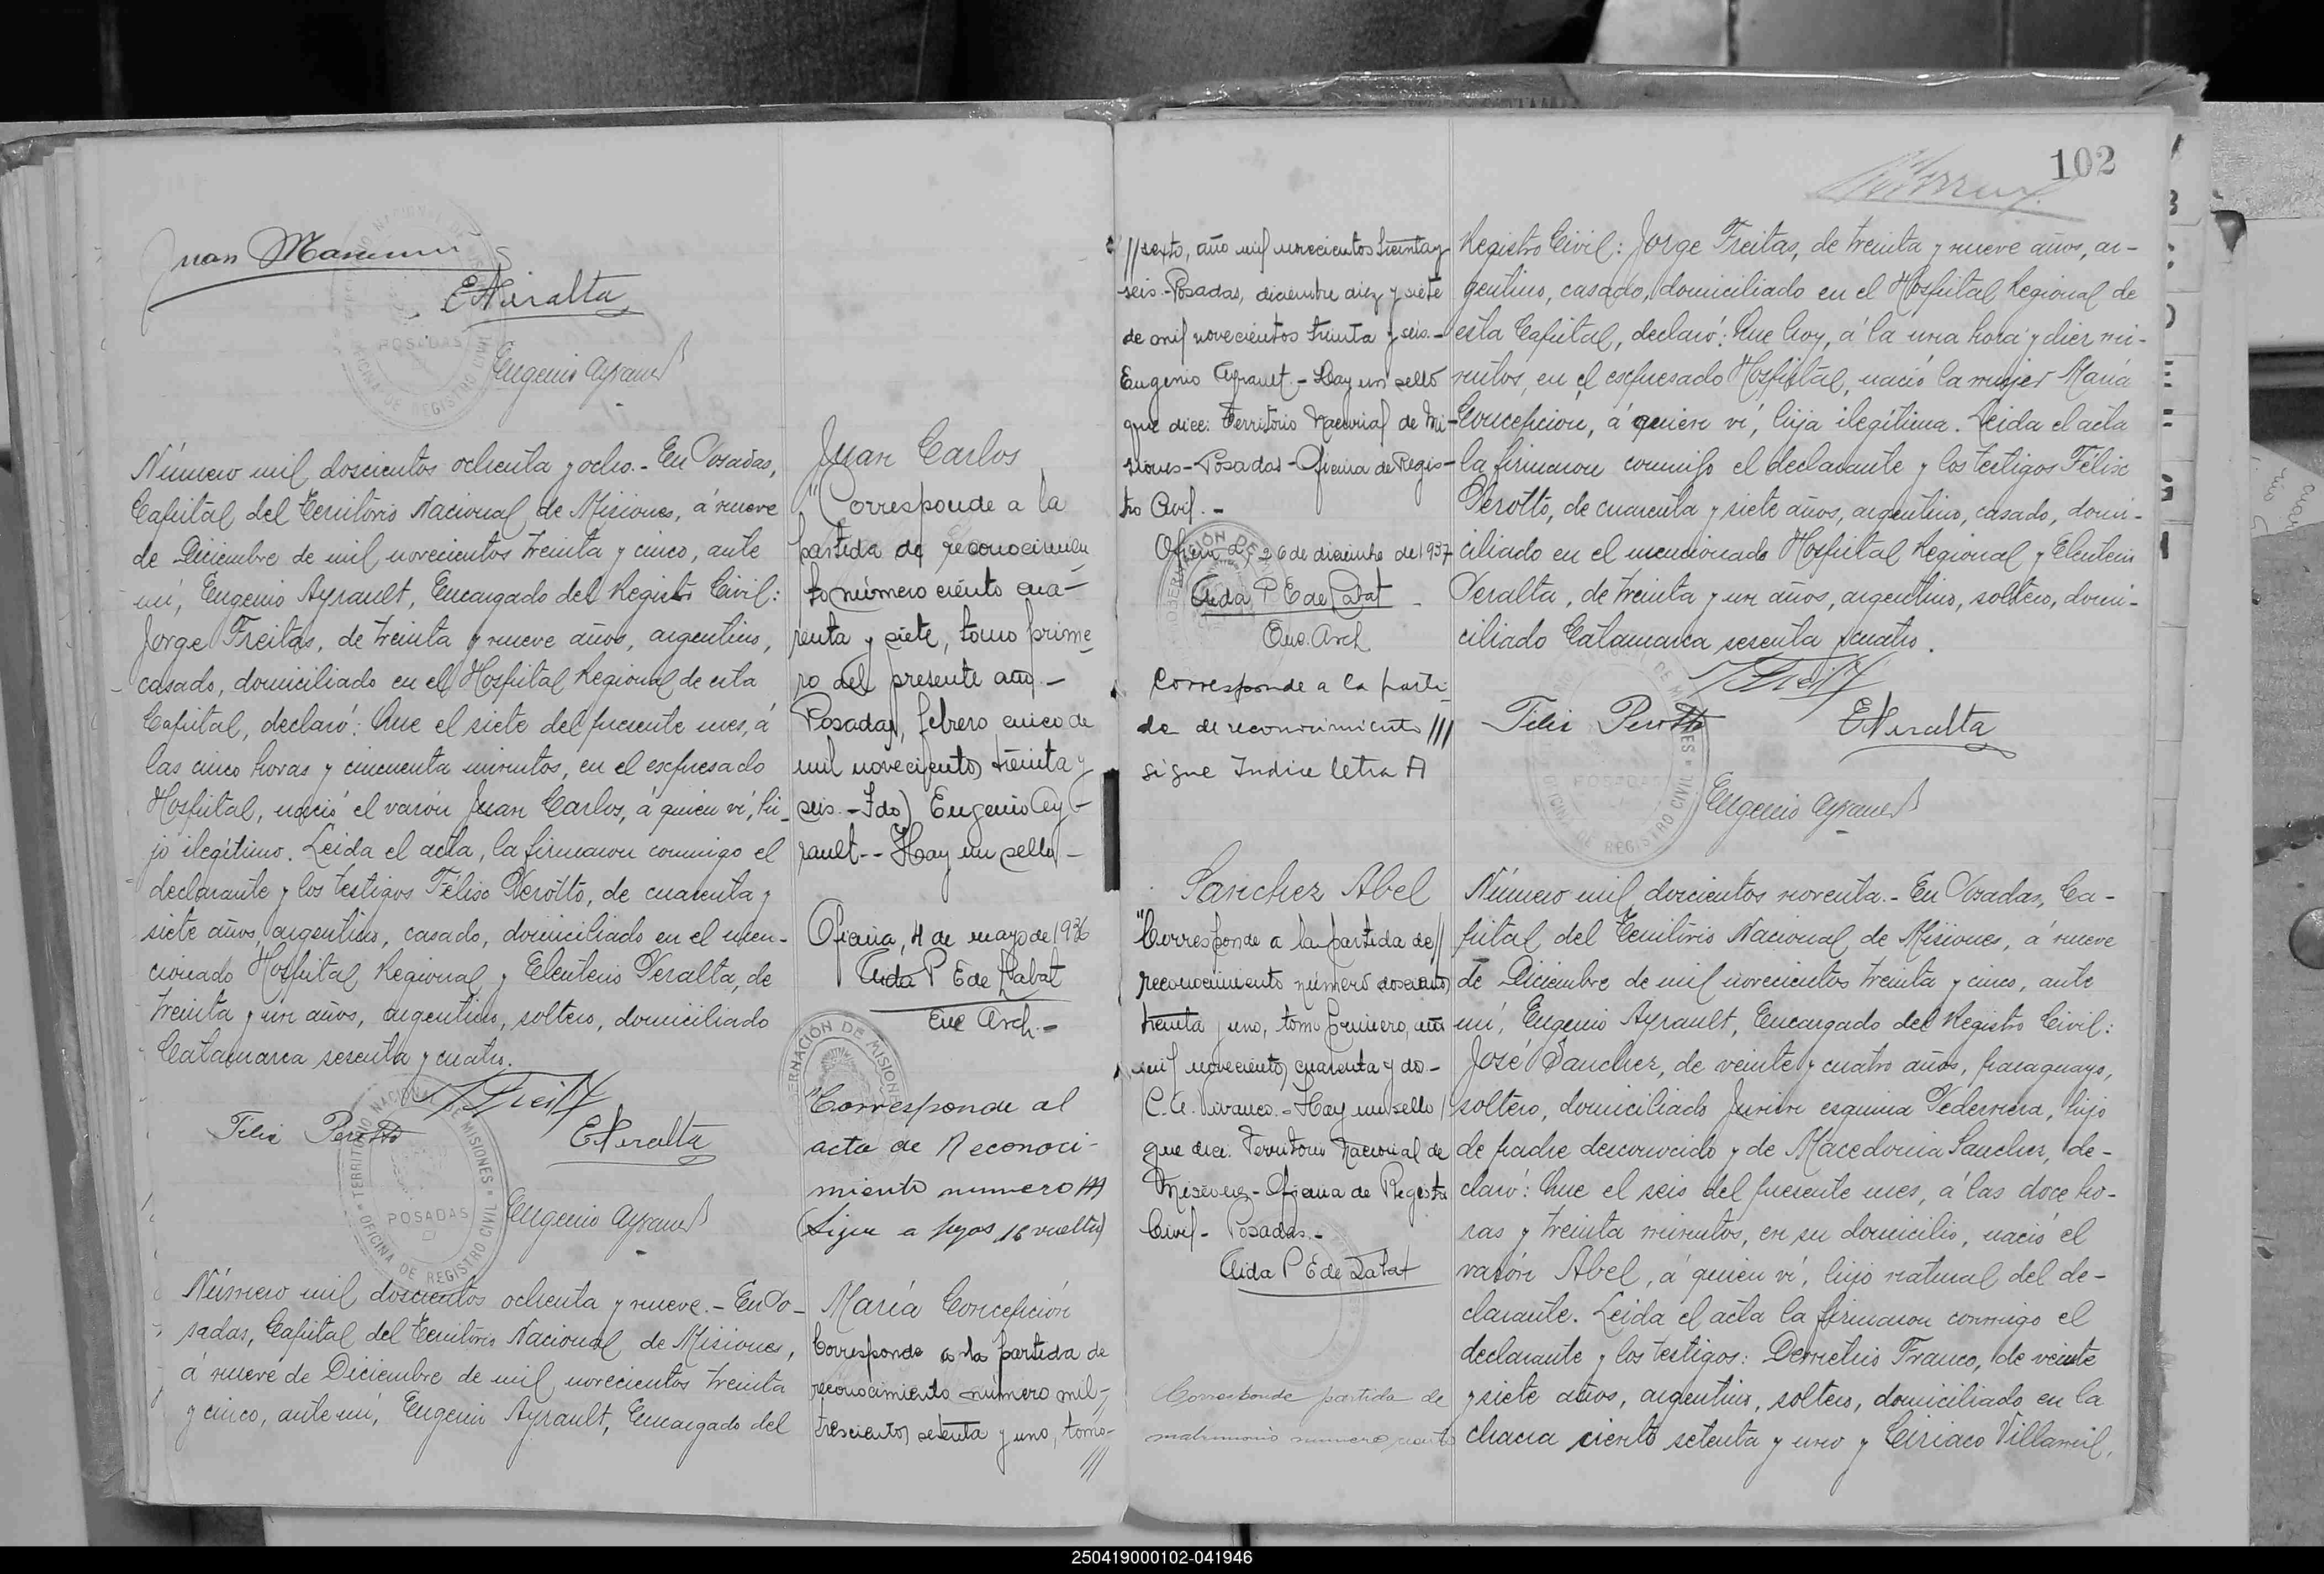 Juan
E Peralta
Eugenio Ayrault
Número mil doscientos ochenta y ocho.- En Posadas,
Capital del Territorio Nacional de Misiones, á nueve
de Diciembre de mil novecientos treinta y cinco, ante
mí, Eugenio Ayrault, Encargado del Registro Civil:
Jorge Freitas, de treinta y nueve años, argentino,
casado, domiciliado en el Hospital Regional de esta
Capital, declaró: Que el siete del presente mes, á
las cinco horas y cincuenta minutos, en el expresado
Hospital, nació el varón Juan Carlos, á quien ví, hi-
jo ilegítimo. Leida el acta, la firmaron conmigo el
declarante y los testigos Félix Perotto, de cuarenta y
siete años, argentino, casado, domiciliado en el men-
cionado Hospital Regional y Eleuterio Peralta, de
treinta y un años, argentino, soltero, domiciliado
Catamarca sesenta y cuatro.
J Freitas
Felix Perotto
E Peralta
TERRITORIO NACIONAL DE MISIONES
POSADAS
OFICINA DE REGISTRO CIVIL
Eugenio Ayrault
Número mil doscientos ochenta y nueve.- En Po-
sadas, Capital del Territorio Nacional de Misiones,
á nueve de Diciembre de mil novecientos treinta
y cinco, ante mí, Eugenio Ayrault, Encargado del
Juan Carlos
"Corresponde a la
partida de reconocimien
to número ciento cua-
renta y siete, tomo prime
ro del presente año.-
Posadas, febrero cinco de
mil novecientos treinta y
seis.- Fdo) Eugenio Ay-
rault-- Hay un sello-
Oficina, 4 de mayo de 1936
Aida P E de Labat
Enc Arch.-
GOBERNACIÓN DE MISIONES
"Corresponde al
acta de Reconoci-
miento numero ///
(Sigue a fojas 16 vuelta)
María Concepción
Corresponde a la partida de
reconocimiento número mil
trescientos setenta y uno, tomo-
///
102
// sexto, año mil novecientos treinta y
seis.- Posadas, diciembre diez y siete
de mil novecientos treinta y seis.-
Eugenio Ayrault.- Hay un sello
que dice: Territorio Nacional de Mi-
siones-Posadas-Oficina de Regis-
tro Civil.-
Oficina, 26 de diciembre de 1937
Aida P E de Labat
Enc. Arch
Corresponde a la parti
da de reconocimiento ///
sigue Indice letra A
Sanchez Abel
"Corresponde a la partida de//
reconocimiento número doscientos
treinta y uno, tomo primero, año
mil novecientos cuarenta y dos.-
C. A. Vivanco.- Hay un sello
que dice: Territorio Nacional de
Misiones- Oficina de Registro
Civil- Posadas.-
Aida P E de Labat
Corresponde partida de
matrimonio numero ciento
Registro Civil: Jorge Freitas, de treinta y nueve años, ar-
gentino, casado, domiciliado en el Hospital Regional de
esta Capital, declaró: Que hoy, á la una hora y diez mi-
nutos, en el expresado Hospital, nació la mujer María
Concepción, á quien ví, hija ilegítima. Leida el acta
la firmaron conmigo el declarante y los testigos Félix
Perotto, de cuarenta y siete años, argentino, casado, domi-
ciliado en el mencionado Hospital Regional y Eleuterio
Peralta, de treinta y un años, argentino, soltero, domi-
ciliado Catamarca sesenta y cuatro.
J Freitas
Felix Perotto
E Peralta
POSADAS
OFICINA DE REGISTRO CIVIL
Eugenio Ayrault
Número mil doscientos noventa.- En Posadas, Ca-
pital del Territorio Nacional de Misiones, á nueve
de Diciembre de mil novecientos treinta y cinco, ante
mí, Eugenio Ayrault, Encargado del Registro Civil:
José Sanchez, de veinte y cuatro años, paraguayo,
soltero, domiciliado Junin esquina Pedernera, hijo
de padre desconocido y de Macedonia Sanchez, de-
claró: Que el seis del presente mes, á las doce ho-
ras y treinta minutos, en su domicilio, nació el
varón Abel, á quien ví, hijo natural del de-
clarante. Leida el acta la firmaron conmigo el
declarante y los testigos: Demetrio Franco, de veinte
y siete años, argentino, soltero, domiciliado en la
chacra ciento setenta y uno y Ciriaco Villamil,
250419000102-041946